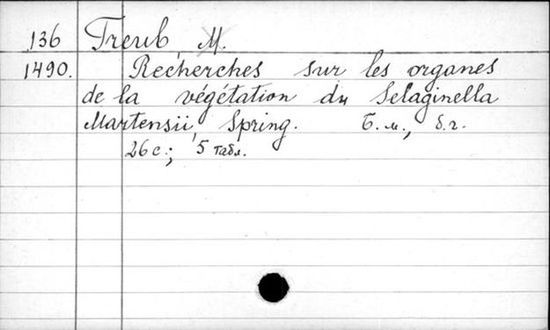 136 Treub M.
1490. Recherches sur les organes
de la végétation du Selaginella
Martensii, Spring. Б. м., б. г.
26 с.; 5 табл.